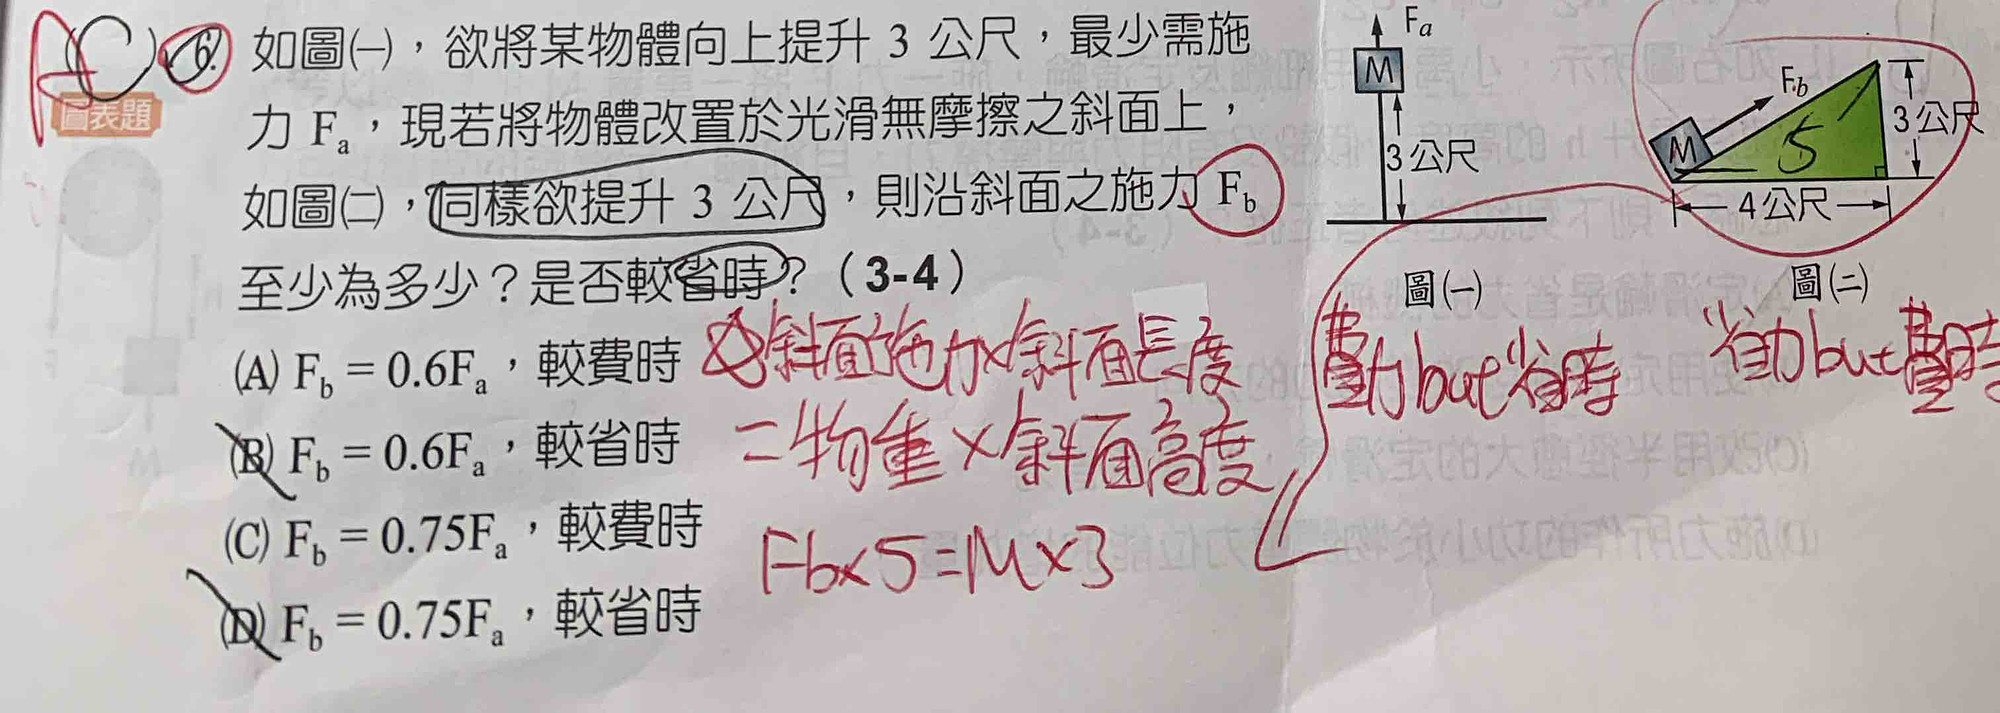 A (C) 6. 如圖㈠，欲將某物體向上提升 3 公尺，最少需施
圖表題
力 Fa，現若將物體改置於光滑無摩擦之斜面上，
如圖㈡，同樣欲提升 3 公尺，則沿斜面之施力 Fb
至少為多少？是否較省時？（3-4）
(A) Fb = 0.6Fa，較費時
(B) Fb = 0.6Fa，較省時
(C) Fb = 0.75Fa，較費時
(D) Fb = 0.75Fa，較省時
斜面施力×斜面長度
=物重×斜面高度
Fb×5=M×3
Fa
M
3 公尺
圖㈠
費力but省時
Fb
M
5
3 公尺
4 公尺
圖㈡
省力but費時